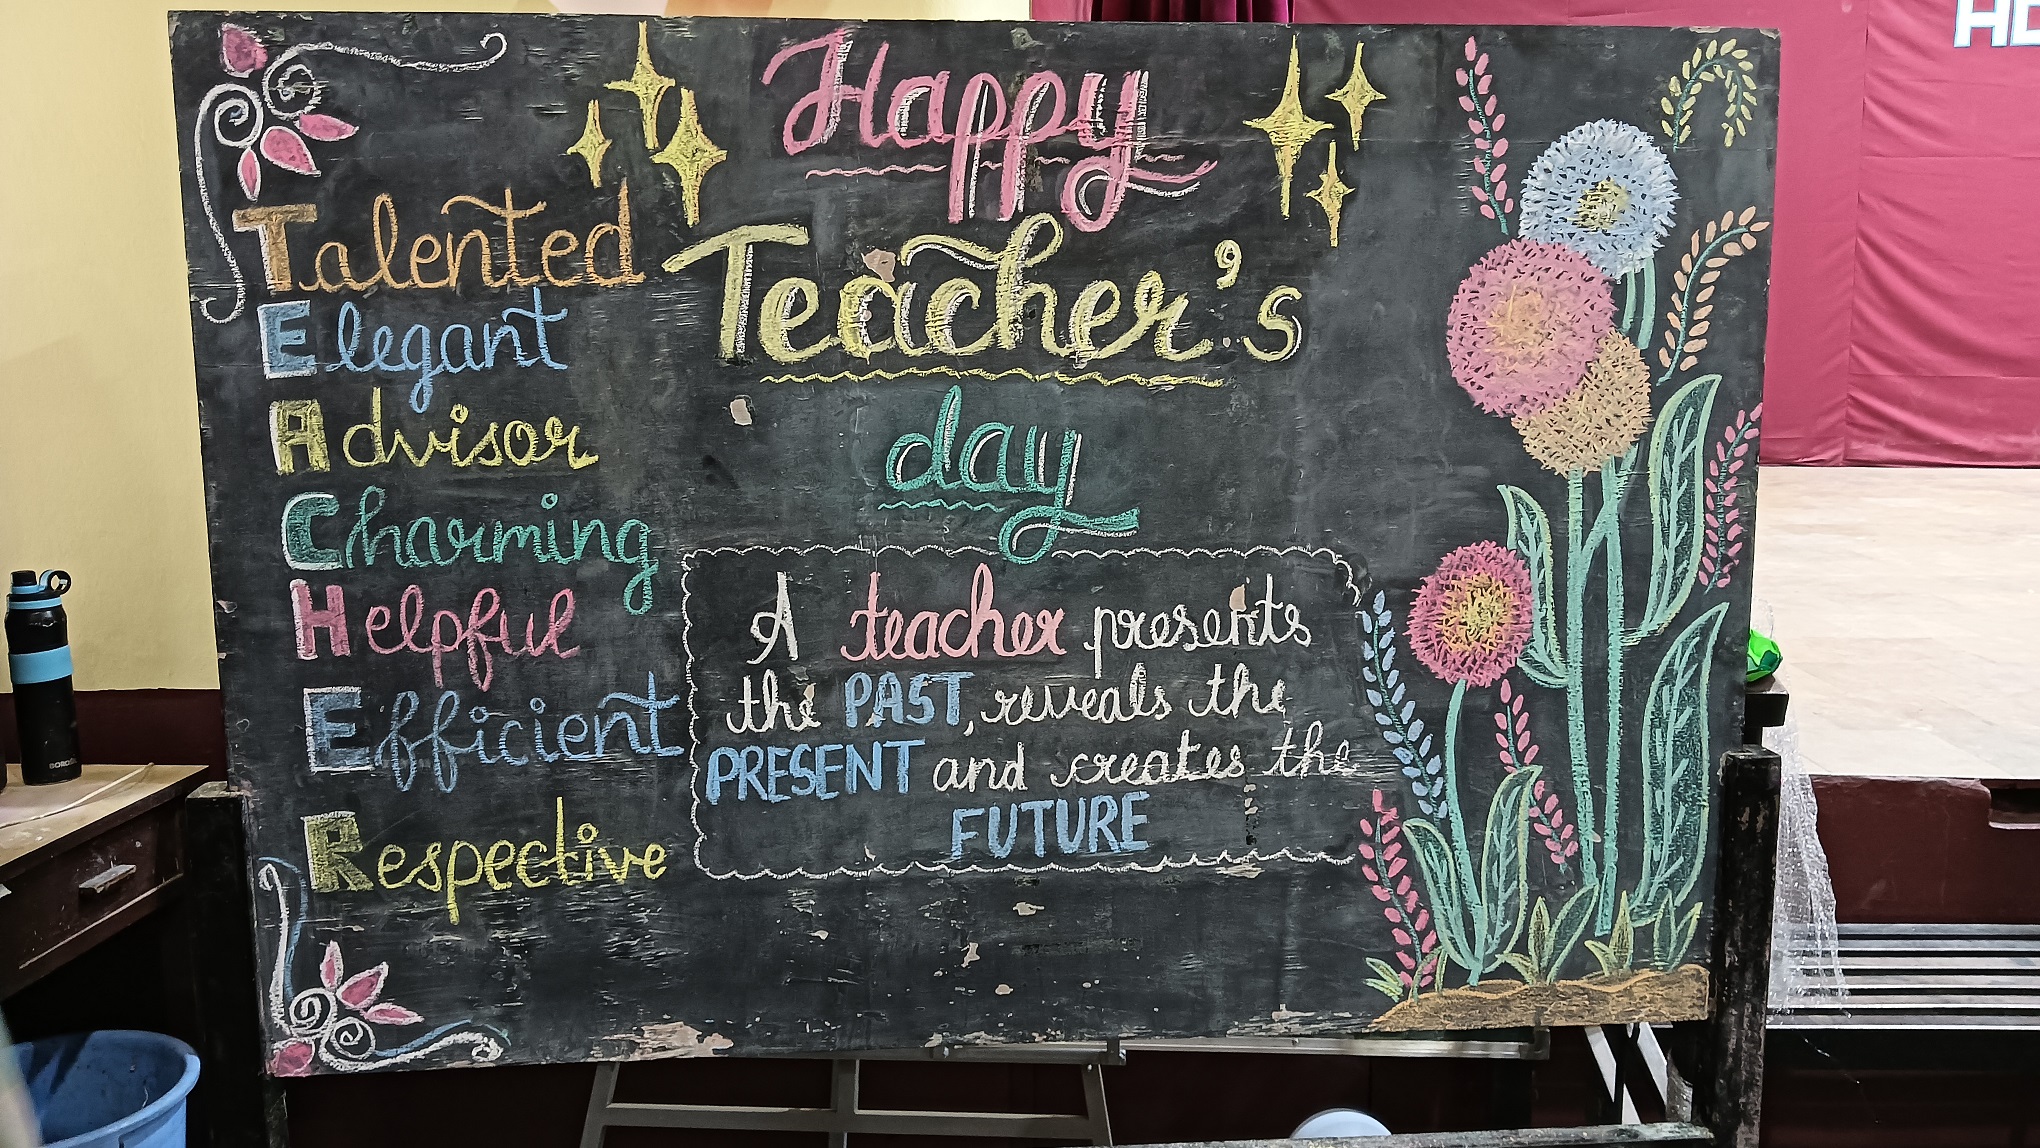 Happy
Teacher's
day
Talented
Elegant
Advisor
Charming
Helpful
Efficient
Respective
A teacher presents
the PAST, reveals the
PRESENT and creates the
FUTURE